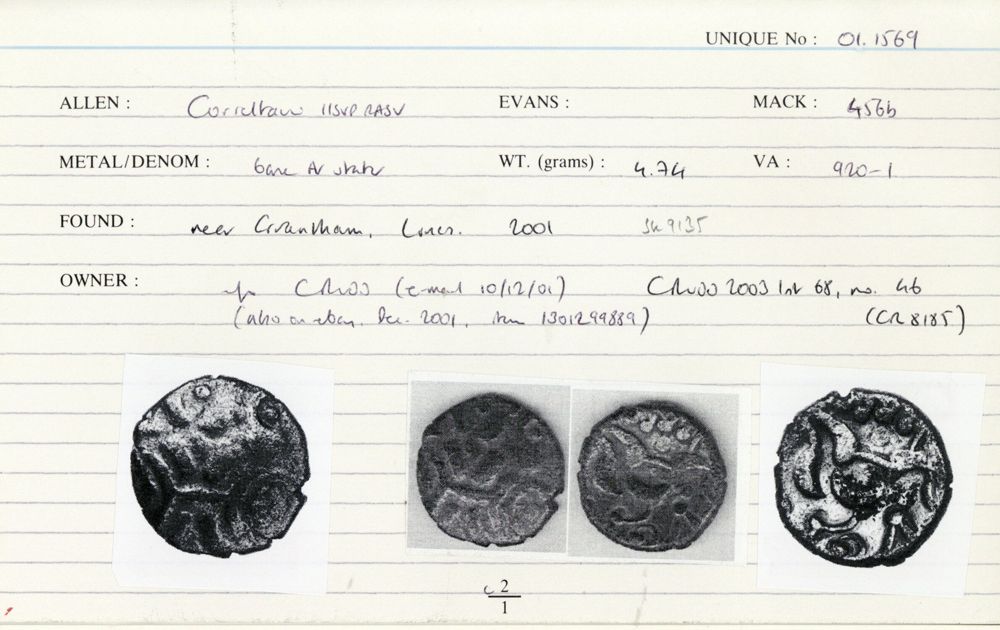 UNIQUE No : 01.1569
ALLEN : Corieltauv IISVP RASV EVANS : MACK : 456b
METAL/DENOM : base AV stater WT. (grams) : 4.74 VA : 920-1
FOUND : near Grantham, Lincs. 2001 SK 9135
OWNER : CR100 (e-mail 10/12/01) 2003 list 68, no. 46
(also on ebay, Dec. 2001, item 1301299889) (CR 8185)
2
1